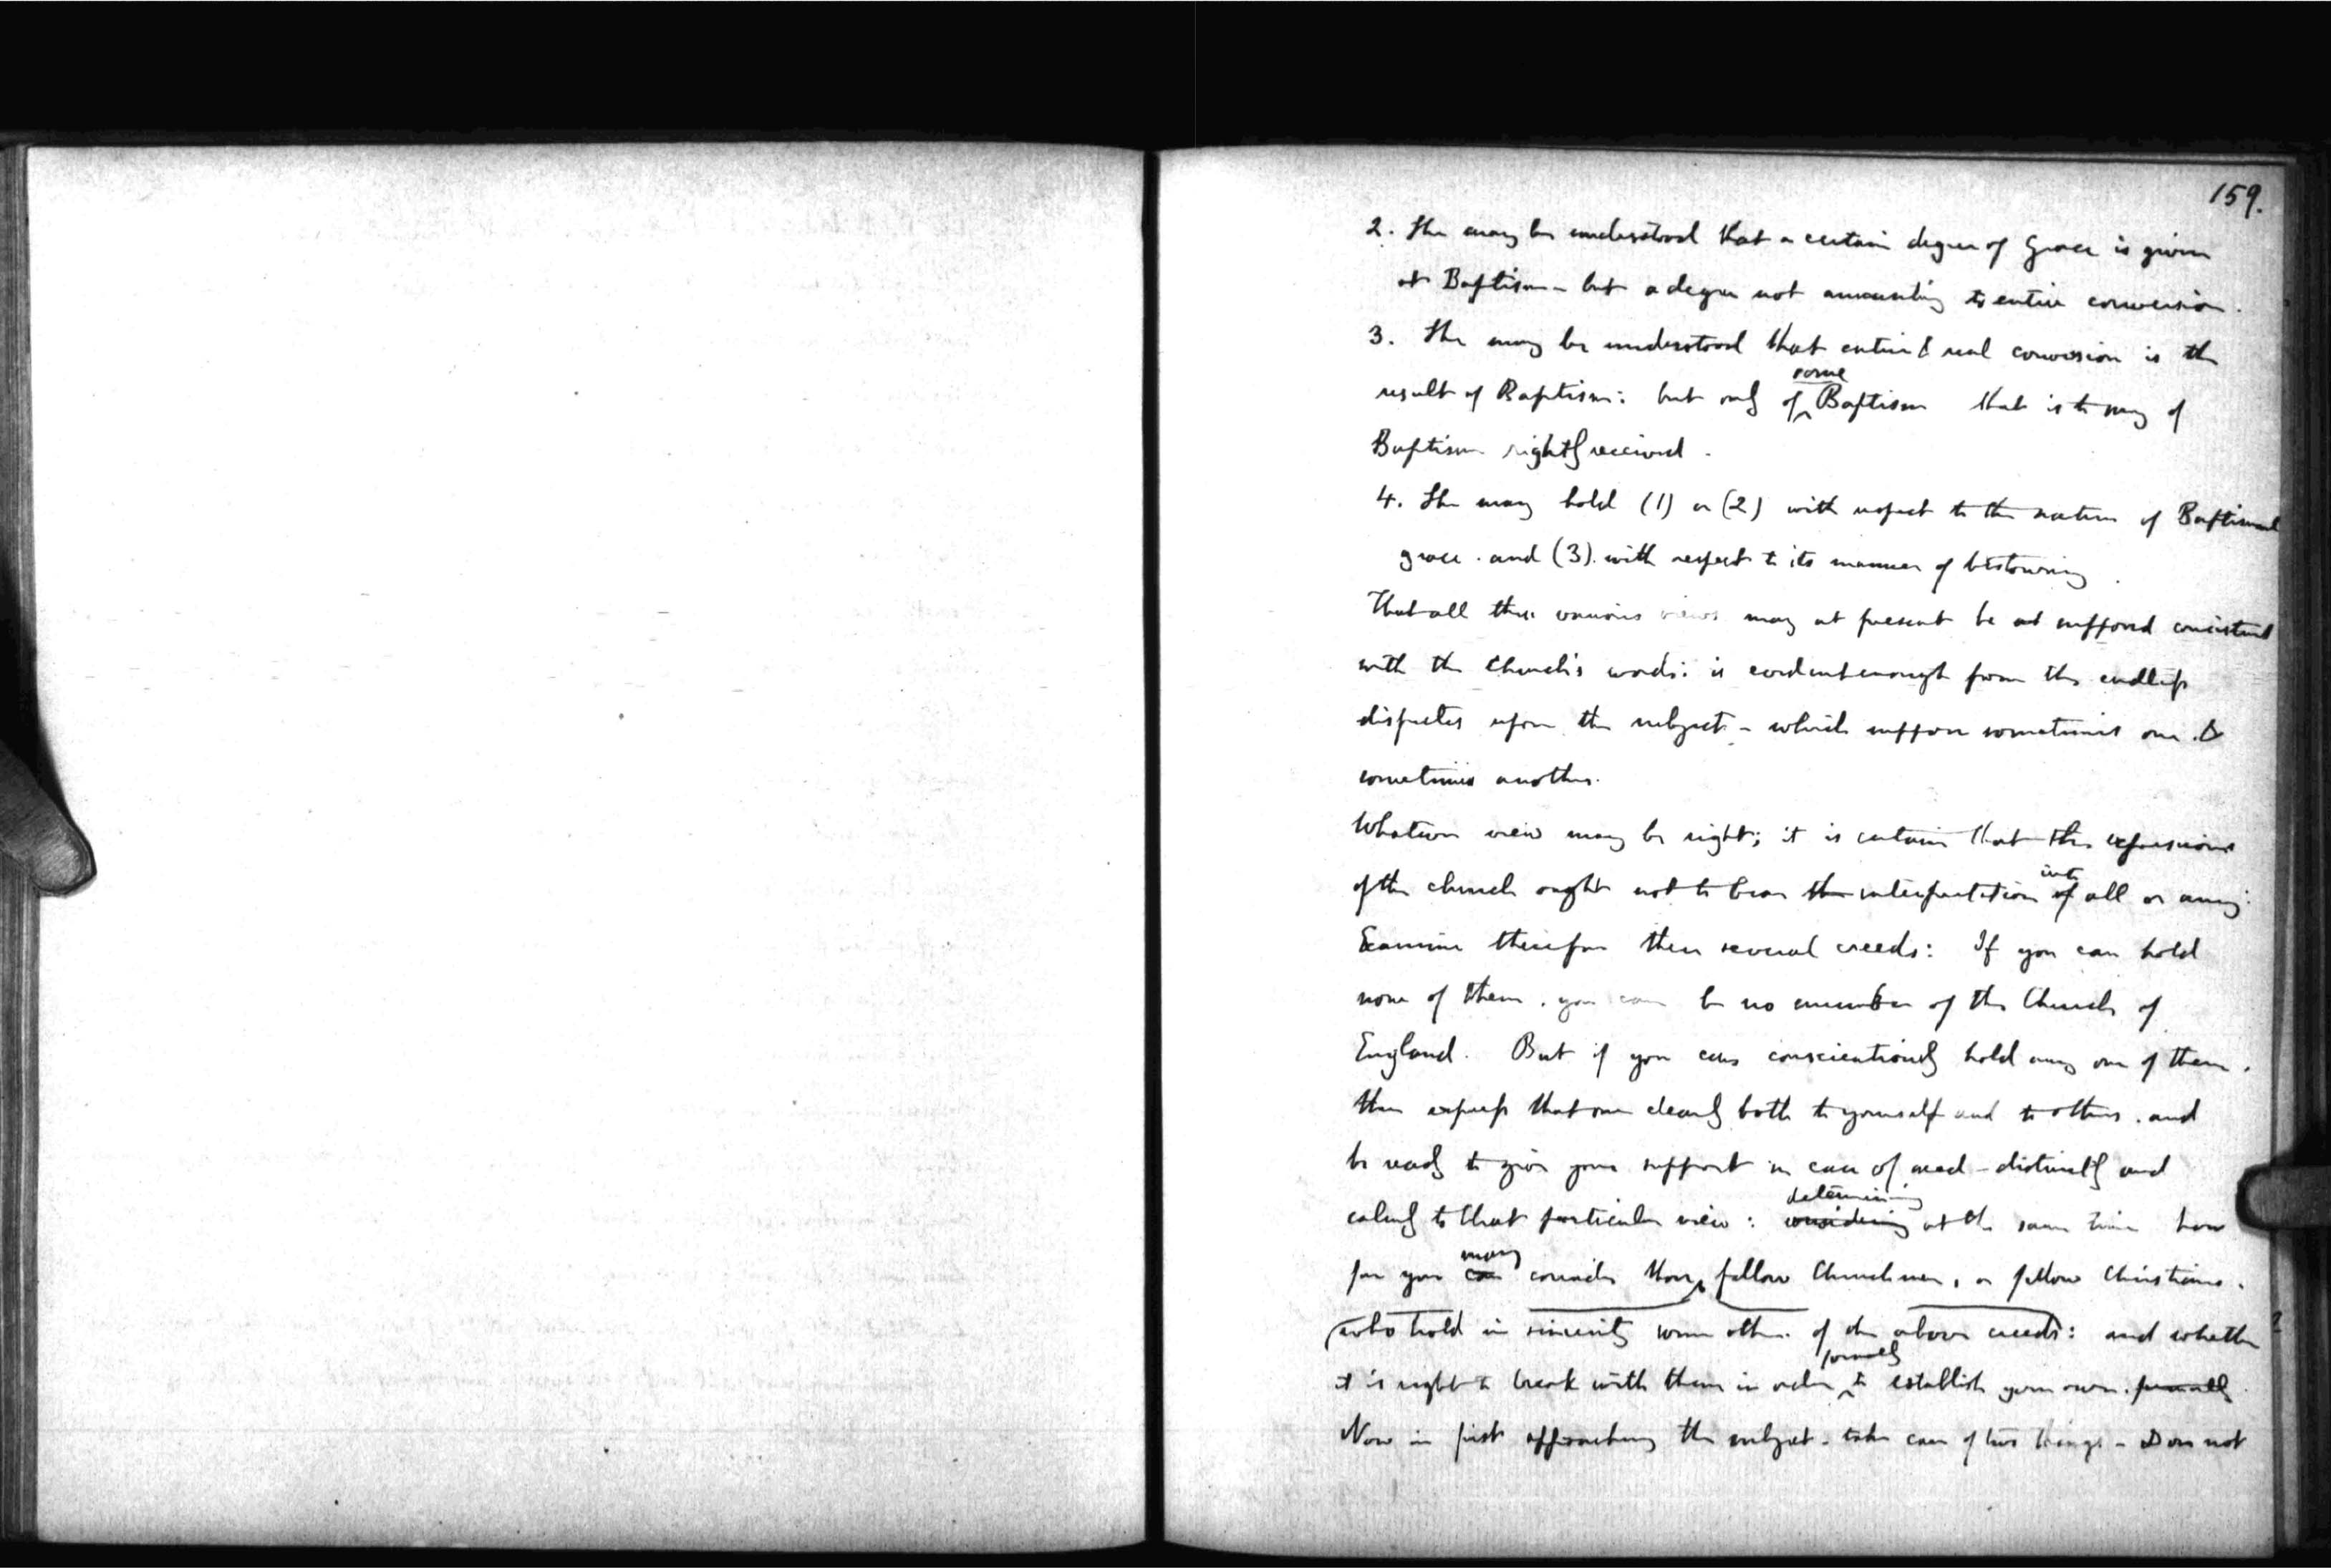 159.
2. She may be understood that a certain degree of Grace is given
at Baptism - but a degree not amounting to entire conversion.
3. She may be understood that entire & real conversion is the
some
result of Baptism: but only of Baptism that is to say of
Baptism rightly received.
4. She may hold (1) or (2) with respect to the nature of Baptismal
grace. and (3). with respect to its manner of bestowing.
That all these various views may at present be supposed consistent
with the Church's words: is evident enough from the endless
disputes upon the subject - which suppose sometimes one &
sometimes another.
Whatever view may be right; it is certain that the expressions
into
of the church ought not to bear the interpretation of all or any:
Examine therefore these several creeds: If you can hold
none of them, you can be no member of the Church of
England. But if you can conscientiously hold any one of them,
then express that one clearly both to yourself and to others. and
be ready to give your support in case of need - distinctly and
determining
calmly to that particular view: considering at the same time how
may
far you can consider those fellow Churchmen, or fellow Christians.
(who hold in sincerity some other of the above creeds: and whether
formally
it is right to break with them in order to establish your own. formally
Now in first approaching the subject - take care of two things - Does not